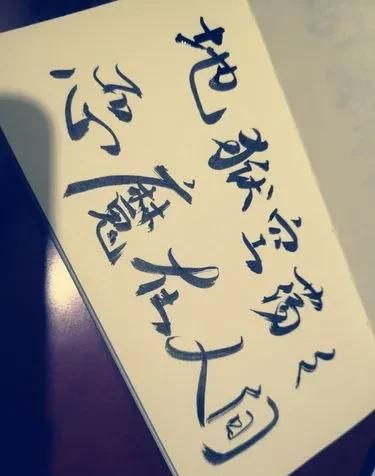 地狱空荡々
恶魔在人间